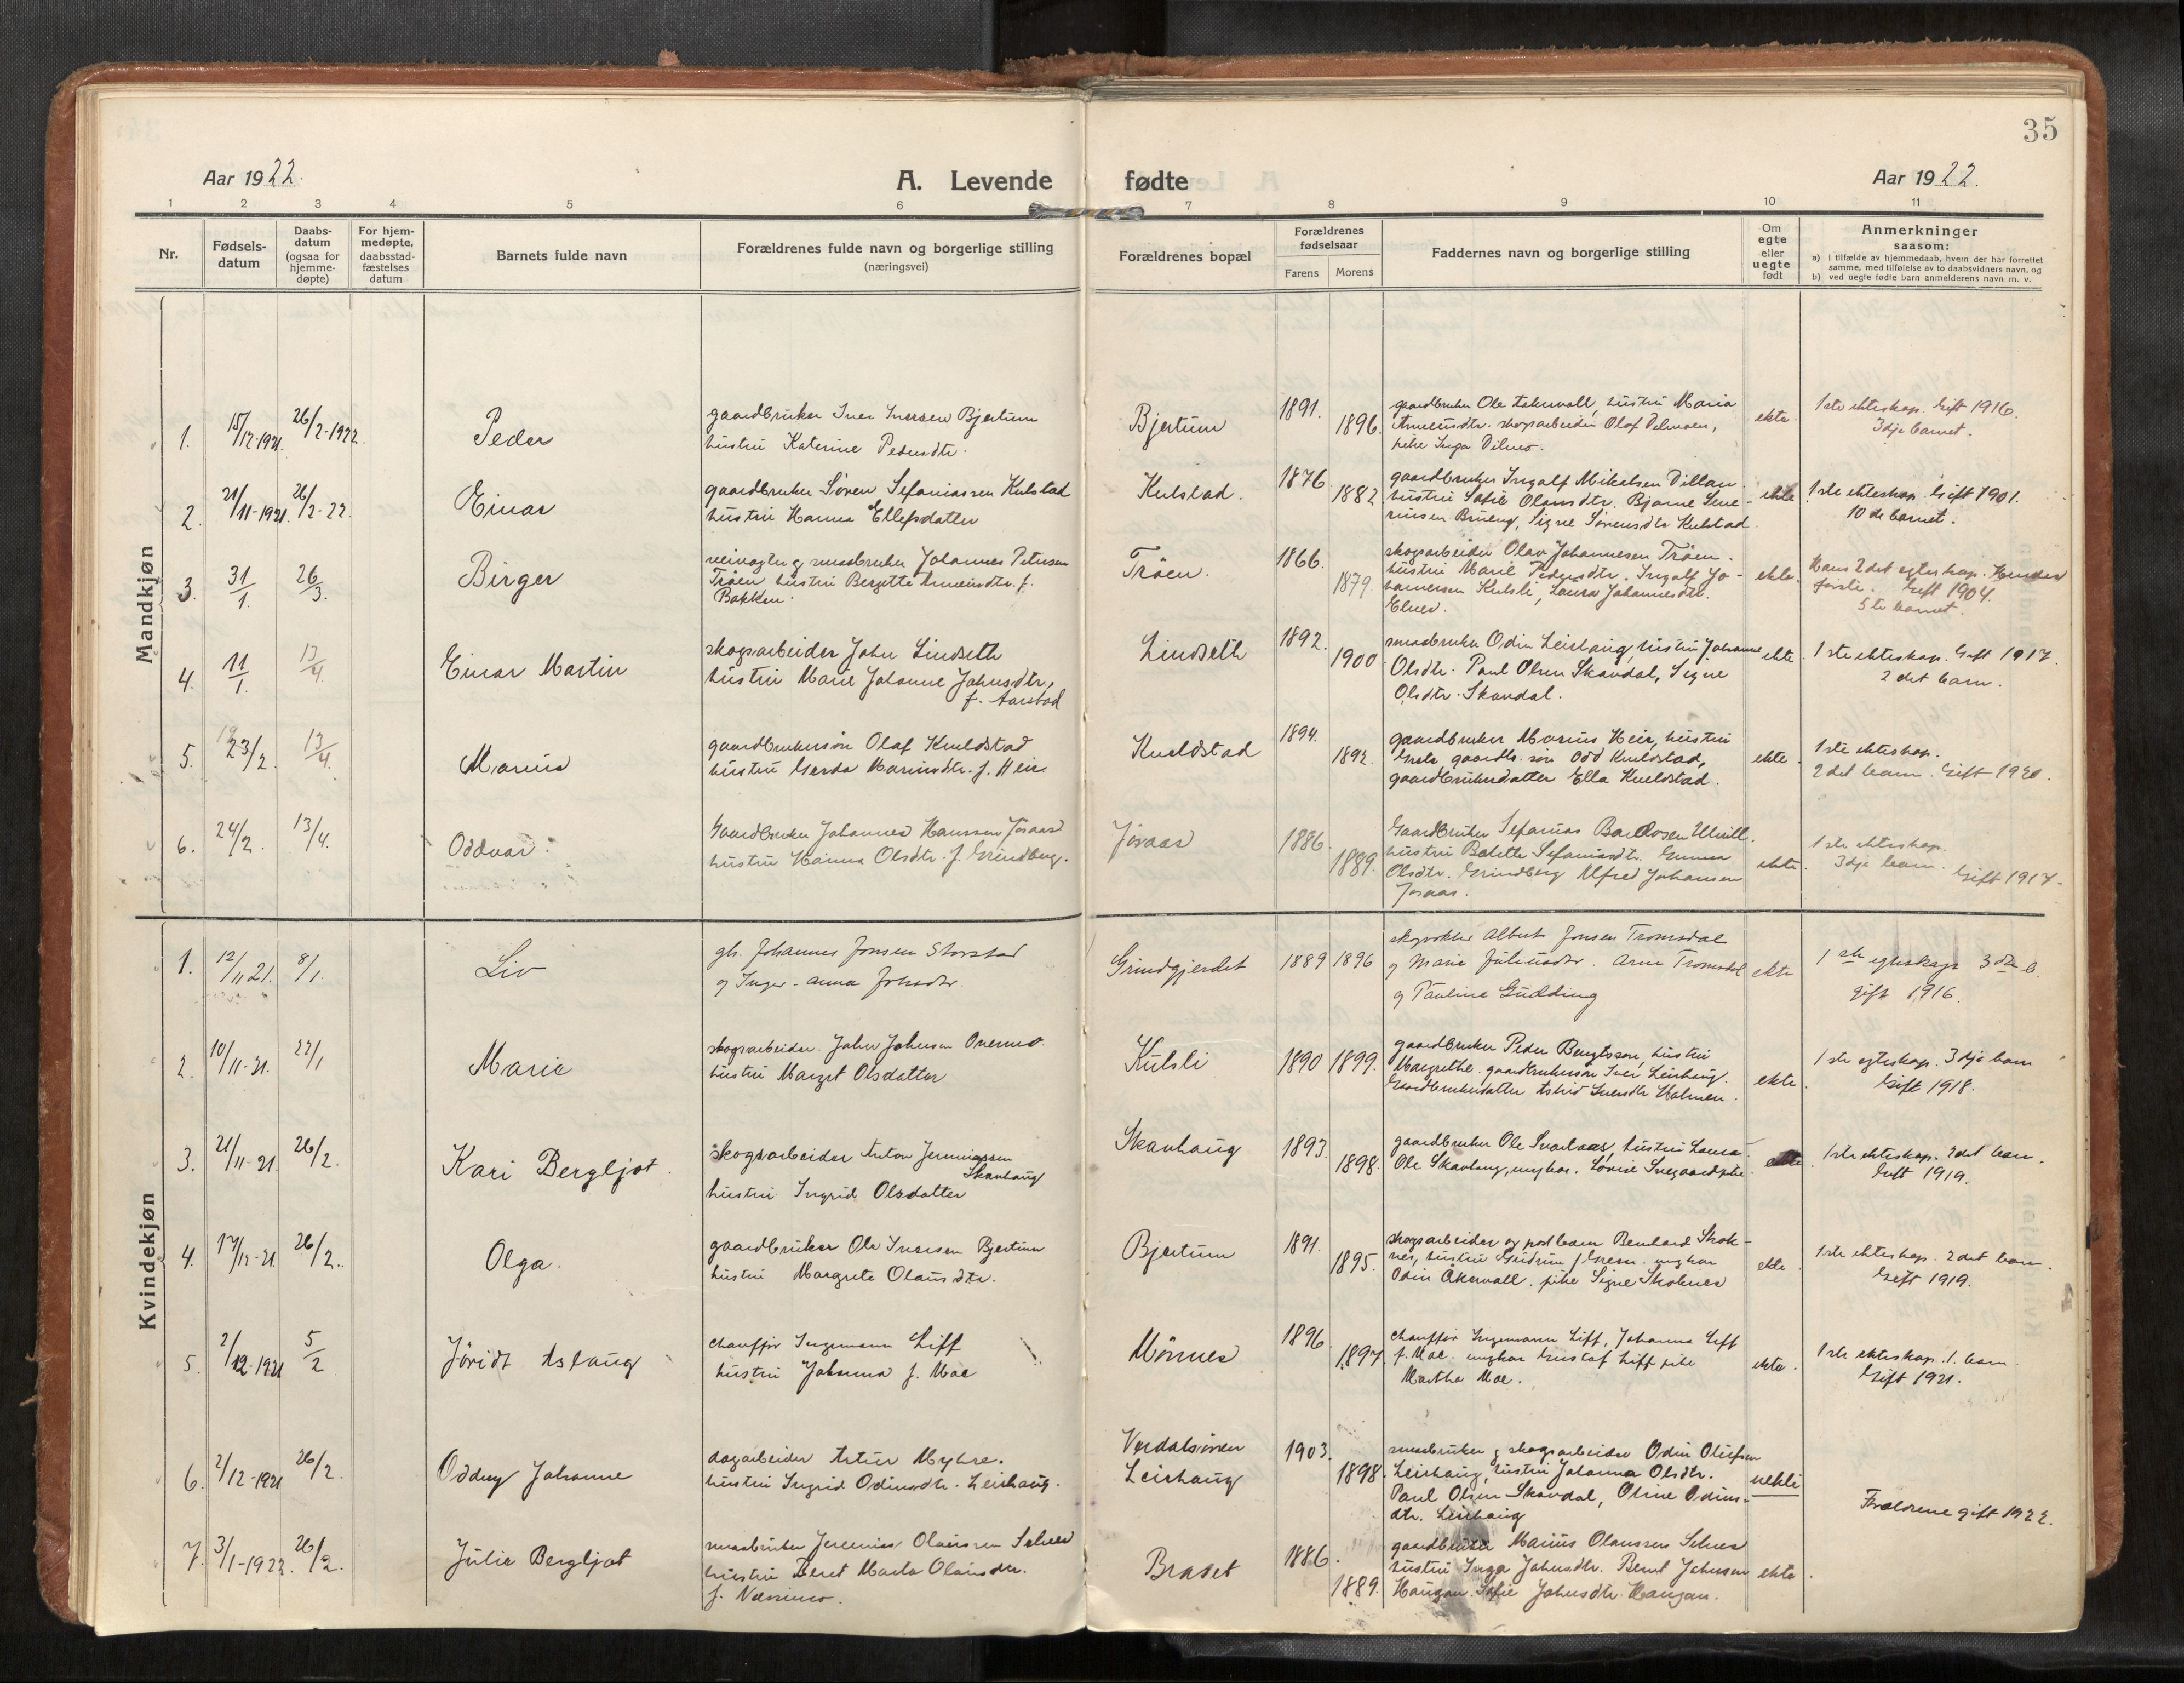 35
Aar 1922.
A. Levende fødte
Aar 1922.
1 2 3 4 5 6 7 8 9 10 11
Nr.
Fødsels-
datum
Daabs-
datum
(ogsaa for
hjemme-
døpte)
For hjem-
medøpte,
daabsstad-
fæstelses
datum
Barnets fulde navn
Forældrenes fulde navn og borgerlige stilling
(næringsvei)
Forældrenes bopæl
Forældrenes
fødselsaar
Farens Morens
Faddernes navn og borgerlige stilling
Om
egte
eller
uegte
født
Anmerkninger
saasom:
a) i tilfælde av hjemmedaab, hvem der har forrettet
samme, med tilføielse av to daabsvidners navn, og
b) ved uegte fødte barn anmelderens navn m. v.
Mandkjøn
1. 15/12-1921. 26/2-1922. Peder
gaardbruker Iver Iversen Bjertum
hustru Katerine Pedersdtr.
Bjertum 1891. 1896.
gaardbruker Ole Akervoll, hustru Maria
Arneusdtr. skogsarbeider Olaf
pike Inga
ekte.
1ste ekteskap. Gift 1916.
3dje barnet.
2. 21/11-1921. 26/2-22. Einar
gaardbruker Sören Sefaniassen Kulstad
hustru Hanna Ellefsdatter
Kulstad. 1876. 1882.
gaardbruker Ingolf Mikalsen Dillan
hustru Sofie Olausdtr. Bjarne Seve-
rinsen Brueng, Signe Sörensdtr Kulstad.
ekte
1ste ekteskap. Gift 1901.
10de barnet.
3. 31/1. 26/3. Birger
veivogter og smaabruker Johannes Petersen
Tröen hustru Bergitte Arneusdtr. f.
Bakken.
Tröen. 1866. 1879.
skogsarbeider Olav Johannesen Tröen.
hustru Marie Pedersdtr. Ingolf Jo-
hannessen Kulsli, Laura Johannesdtr.
Elnes.
ekte.
Hans 2det egteskap. Hendes
første. Gift 1904.
5te barnet.
4. 11/1. 13/4. Einar Martin
skogsarbeider John Lindseth
hustru Marie Johanne Johnsdtr.,
f. Aarstad
Lindseth 1892. 1900
smaabruker Odin Leirhaug, hustru Johanna
Olsdtr. Paul Olsen Skavdal, Signe
Olsdtr. Skavdal.
ekte.
1ste ekteskap. Gift 1917.
2det barn.
5. 23/2. 13/4. Marius
gaardbrukersön Olaf Kveldstad
hustru Gerda Mariusdtr. f. Heir
Kveldstad 1894. 1892.
gaardbruker Marius Heir, hustru
Grete gaardb. sön Odd Kveldstad,
gaardbrukerdatter Ella Kveldstad.
ekte.
1ste ekteskap.
2det barn. Gift 1920.
6. 24/2. 13/4. Oddvar.
Gaardbruker Johannes Hanssen Jösaas
hustru Hanna Olsdtr. f. Grindberg.
Jösaas 1886. 1889.
Gaardbruker Sefanias Ulvill.
hustru Bolette Sefaniasdtr. Emma
Olsdtr. Grindberg Alfred Johansen
Jösaas.
ekte.
1ste ekteskap.
3dje barn. Gift 1917.
Kvindekjøn
1. 12/11 21. 8/1. Liv
gb. Johannes Jonsen Storstad
og Inger-Anna Johsdtr.
Grindgjerdet 1889 1896
skogvokter Albert Jonsen Tromsdal
og Marie Juliusdtr. Arne Tromsdal
og Pauline Gudding
ekte
1ste egteskap 3die b.
gift 1916.
2. 10/11-21. 22/1 Marie
skogsarbeider. John Johnsen Overmo.
hustru Marget Olsdatter
Kulsli 1890 1899.
gaardbruker Peder Bengtsson, hustru
Margrethe. gaardbrukersön Iver Leirhaug.
Gaardbrukerdatter Astrid Iversdtr Holmen.
ekte.
1ste egteskap. 3dje barn
Gift 1918.
3. 21/11-21. 26/2. Kari Bergljot.
skogsarbeider Anton Jeremiassen
Skavhaug
hustru Ingrid Olsdatter
Skavhaug 1893. 1898.
gaardbruker Ole Svartaas, hustru Laura.
Ole Skavhaug, ungkar. Lovise pike.
ekte.
1ste ekteskap. 2det barn.
Gift 1919.
4. 17/12-21. 26/2. Olga.
gaardbruker Ole Iversen Bjertum
hustru Margrete Olausdtr.
Bjertum 1891. 1895.
skogsarbeider og Bernhard Skok-
nes, hustru Gudrun Iversen. ungkar
Odin Åkervoll. pike Signe Skoknes
ekte
1ste ekteskap. 2det barn.
Gift 1919.
5. 2/12-1921 5/2 Jöridt Aslaug
chauffør Ingemann Liff
hustru Johanna f. Moe
Mönnes 1896. 1897.
chauffør Ingemann Liff, Johanna Liff
f. Moe. ungkar Gustaf Liff pike
Martha Moe.
ekte.
1ste ekteskap. 1. barn.
Gift 1921.
6. 2/12-1921 26/2. Oddny Johanne
dagarbeider Artur Myhre.
hustru Ingrid Odinsdtr. Leirhaug.
Verdalsören
Leirhaug 1903. 1898.
smaabruker og skogsarbeider Odin Olufsen
Leirhaug, hustru Johanna Olsdtr.
Paul Olsen Skavdal, Oline Odins-
dtr. Leirhaug
uekte
Forældrene gift 1922.
7. 3/1-1922. 26/2. Julie Bergljot
smaabruker Jeremias Olaussen Selnes
hustru Beret Marta Olausdtr.
f. Næssmo.
Braset 1886. 1889.
gaardbruker Marius Olaussen Selnes
hustru Inga Johnsdtr. Bernt Johnsen
Haugan. Sofie Johnsdtr. Haugan.
ekte.